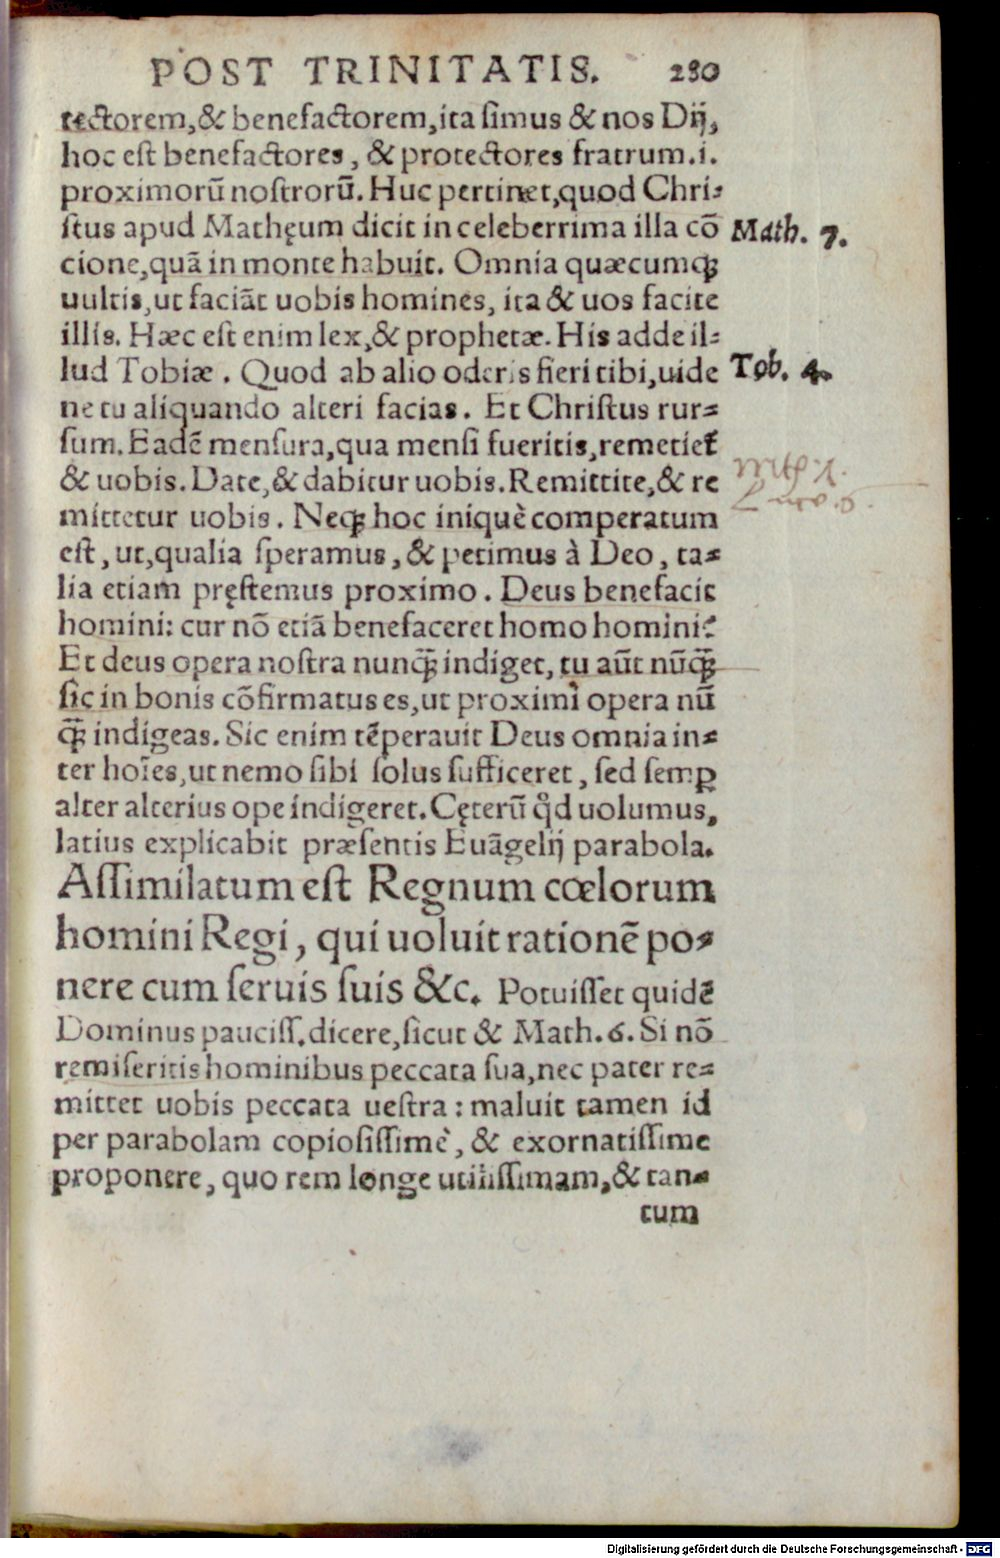 POST TRINITATIS. 280
tectorem,& benefactorem,ita ſimus & nos Dij,
hoc eſt benefactores, & protectores fratrum.i.
proximorū noſtrorū. Huc pertinet,quod Chri-
ſtus apud Mathęum dicit in celeberrima illa cō
Math. 7.
cione,quā in monte habuit. Omnia quæcumq́;
uultis,ut faciāt uobis homines, ita & uos facite
illis. Hæc eſt enim lex,& prophetæ. His adde il-
lud Tobiæ. Quod ab alio oderis fieri tibi,uide
Tob. 4.
ne tu aliquando alteri facias. Et Chriſtus rur-
ſum. Eadē menſura,qua menſi fueritis,remetiet̄
& uobis. Date,& dabitur uobis. Remittite,& re
Luce. 6.
mittetur uobis. Neq; hoc iniquè comperatum
eſt, ut,qualia ſperamus, & petimus à Deo, ta-
lia etiam pręſtemus proximo. Deus benefacit
homini: cur nō etiā benefaceret homo homini?
Et deus opera noſtra nunq̄; indiget, tu aūt nūq̄;
ſic in bonis cōfirmatus es,ut proximi opera nū
q̄; indigeas. Sic enim tēperauit Deus omnia in-
ter hoīes,ut nemo ſibi ſolus ſufficeret, ſed ſemꝑ
alter alterius ope indigeret. Cęterū qd̄ uolumus,
latius explicabit præſentis Euāgelij parabola.
Aſſimilatum eſt Regnum cœlorum
homini Regi, qui uoluit rationē po-
nere cum ſeruis ſuis &c. Potuiſſet quidē
Dominus pauciſſ. dicere,ſicut & Math.6. Si nō
remiſeritis hominibus peccata ſua,nec pater re-
mittet uobis peccata ueſtra: maluit tamen id
per parabolam copioſiſſimè, & exornatiſſime
proponere, quo rem longe utiliſſimam,& tan-
tum
Digitalisierung gefördert durch die Deutsche Forschungsgemeinschaft - DFG